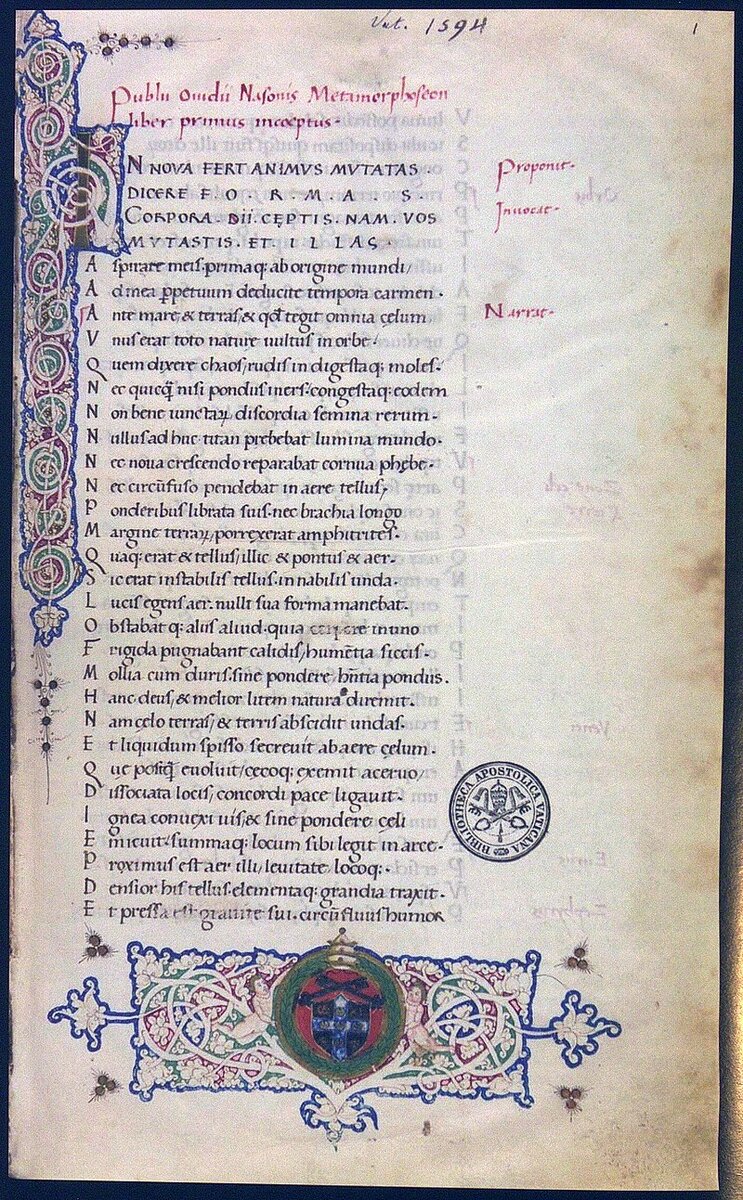 Vat. 1594
1
Publii Ouidii Nasonis Metamorphoseon
liber primus incoeptus.
IN NOVA FERT ANIMVS MVTATAS.
DICERE FORMAS
CORPORA DII CĘPTIS. NAM. VOS
MVTASTIS ET ILLAS
Proponit.
Inuocat.
A spirate meis primaq; ab origine mundi/
A d mea ꝑpetuum deducite tempora carmen.
A nte mare, & terras, & qđ tegit omnia cęlum
Narrat.
V nus erat toto nature uultus in orbe.
Q uem dixere chaos, rudis in digestaq; moles.
N ec quicq̃ nisi pondus iners. congestaq; eodem
N on bene iunctaꝝ discordia semina rerum.
N ullus ad huc titan prebebat lumina mundo.
N ec noua crescendo reparabat cornua phębe.
N ec circũfuso pendebat in aere tellus/
P onderibus librata suis. nec brachia longo
M argine terraꝝ porrexerat amphitrites.
Q uaq; erat & tellus, illic & pontus & aer.
S ic erat instabilis tellus. innabilis unda.
L ucis egens aer. nulli sua forma manebat.
O bstabatq; aliis aliud. quia corpore in uno
F rigida pugnabant calidis, humẽtia siccis.
M ollia cum duris. sine pondere, hñtia pondus.
H anc deus, & melior litem natura diremit.
N am celo terras, & terris abscidit undas.
E t liquidum spisso secreuit ab aere cęlum.
Q uę postq̃ euoluit, cęcoq; exemit aceruo,
D issociata locis, concordi pace ligauit.
I gnea conuexi uis, & sine pondere cęli
E micuit. summaq; locum sibi legit in arce.
P roximus est aer illi, leuitate locoq;.
D ensior his tellus. elementaq; grandia traxit.
E t pressa est grauitate sui. circũfluus humor
BIBLIOTHECA APOSTOLICA VATICANA